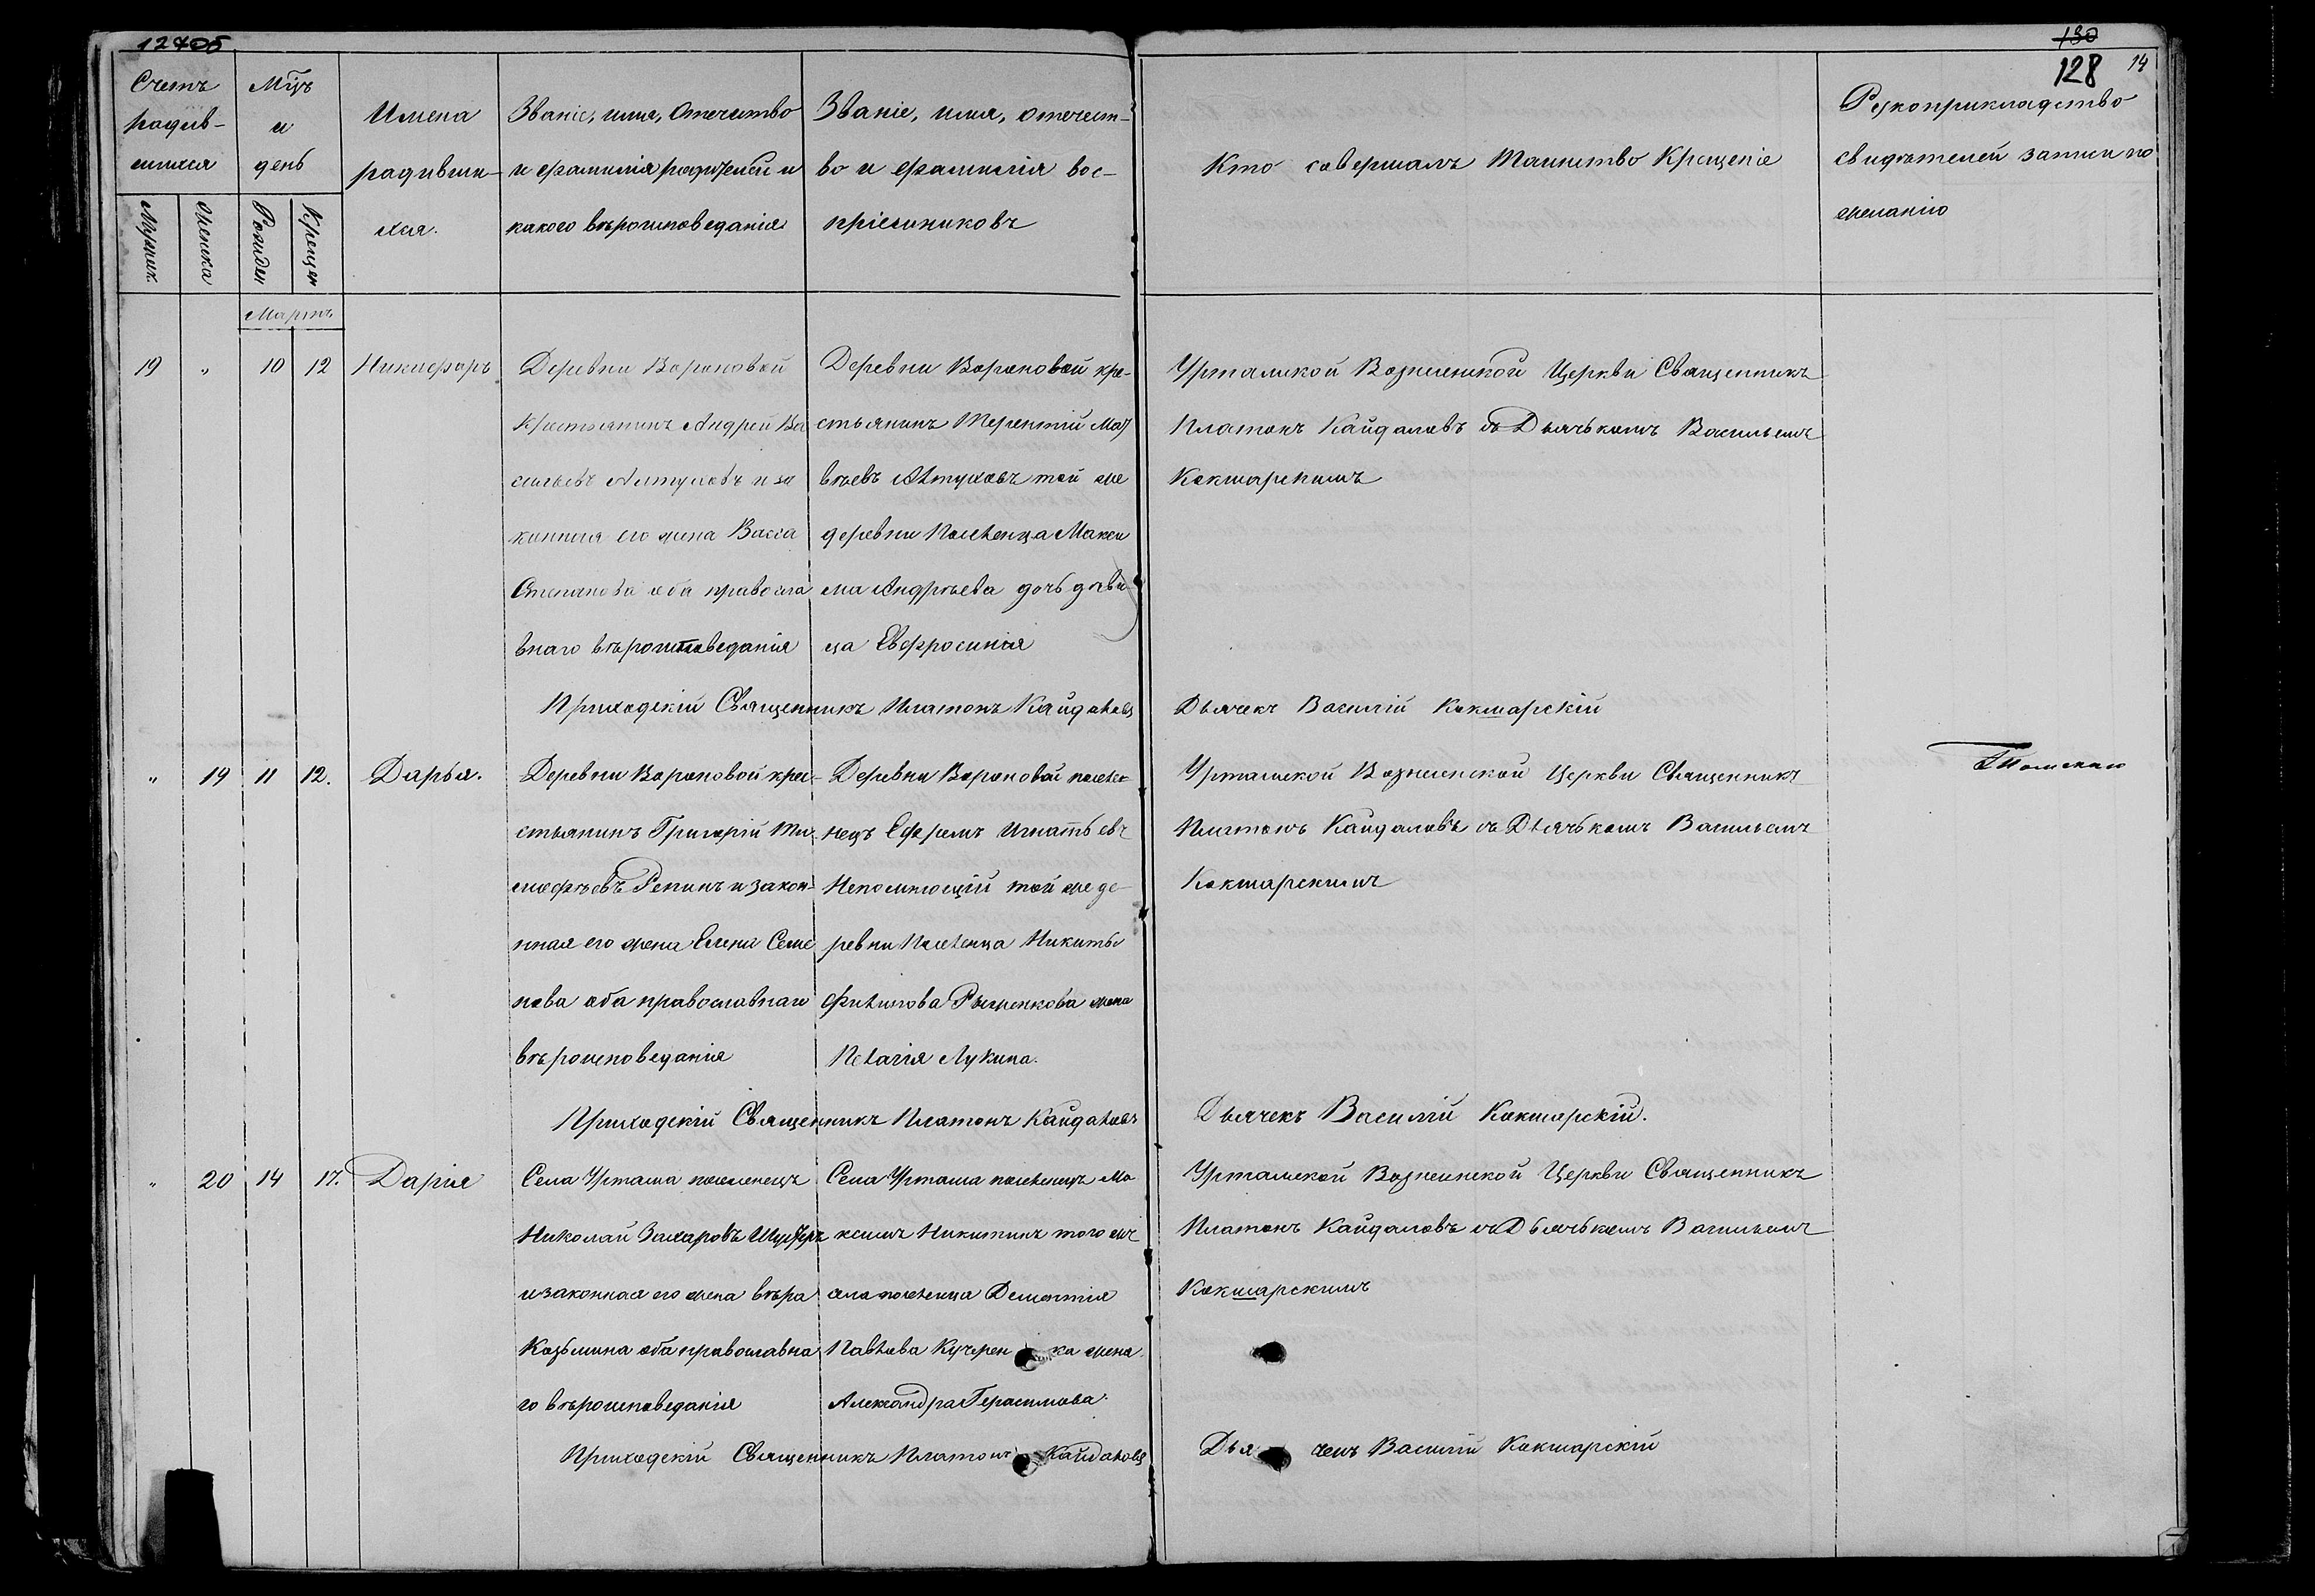 130
128 14
Счетъ
родив-
шихся
Мужск.
Женска
Мѣцъ
и
день
Рожден
Крещен
Имена
родивши-
хся.
Званіе, имя, отечество
и фамилія родителей и
какого вѣроисповеданія
Званіе, имя, отечест-
во и фамилія вос-
пріемниковъ
Кто совершалъ Таинство Крещеніе
Рукоприкладство
свидѣтелей записи по
желанію
Мартъ
19 " 10 12 Никифоръ
Деревни Вороновой
Крестьянинъ Андрей Ва
сильевъ Алтуховъ и за
конная его жена Васса
Степанова оба правосла
внаго вѣроисповеданія
Деревни Вороновой кре-
стьянинъ Терентій Мат
вѣевъ Алтуховъ той же
деревни Поселенца Макси
ма Андрѣева дочь дѣви-
ца Евфросинія
Урталиской Вознесенской Церкви Священникъ
Платонъ Кайдаловъ съ Дьячькомъ Васильемъ
Кокшарскимъ
Приходскій Священникъ Платонъ Кайдаловъ
Дьячекъ Василій Кокшарскій
" 19 11 12. Дарья.
Деревни Вороновой кре-
стьянинъ Григорій Ти-
мофѣевъ Репинъ и закон-
нная его жена Елена Семе
нова оба православнаго
вѣроисповеданія
Деревни Вороновой поселе-
нецъ Ефремъ Игнатьевъ
Непомнющій той же де-
ревни Поселенца Никиты
Филипова Рыженкова жена
Пелагія Лукина.
Урталмской Вознесенской Церкви Священникъ
Платонъ Кайдаловъ съ Дьячькомъ Васильемъ
Кокшарскимъ
Приходскій Священникъ Платонъ Кайдаловъ
Дьячекъ Василій Кокшарскій.
" 20 14 17. Дарія
Села Уртама поселенецъ
Николай Захаровъ
и законная его жена вѣра
Козьмина оба православна
го вѣроисповеданія
Села Уртама поселенецъ Ма
ксимъ Никитинъ того же
села поселенца Дементія
Павлова Кучерен ка жена
Александра Герасимова.
Уртамской Вознесенской Церкви Священникъ
Платонъ Кайдаловъ съ Дьячькомъ Васильемъ
Кокшарскимъ
Приходскій Священникъ Платонъ Кайдаловъ
Дья чекъ Василій Кокшарскій